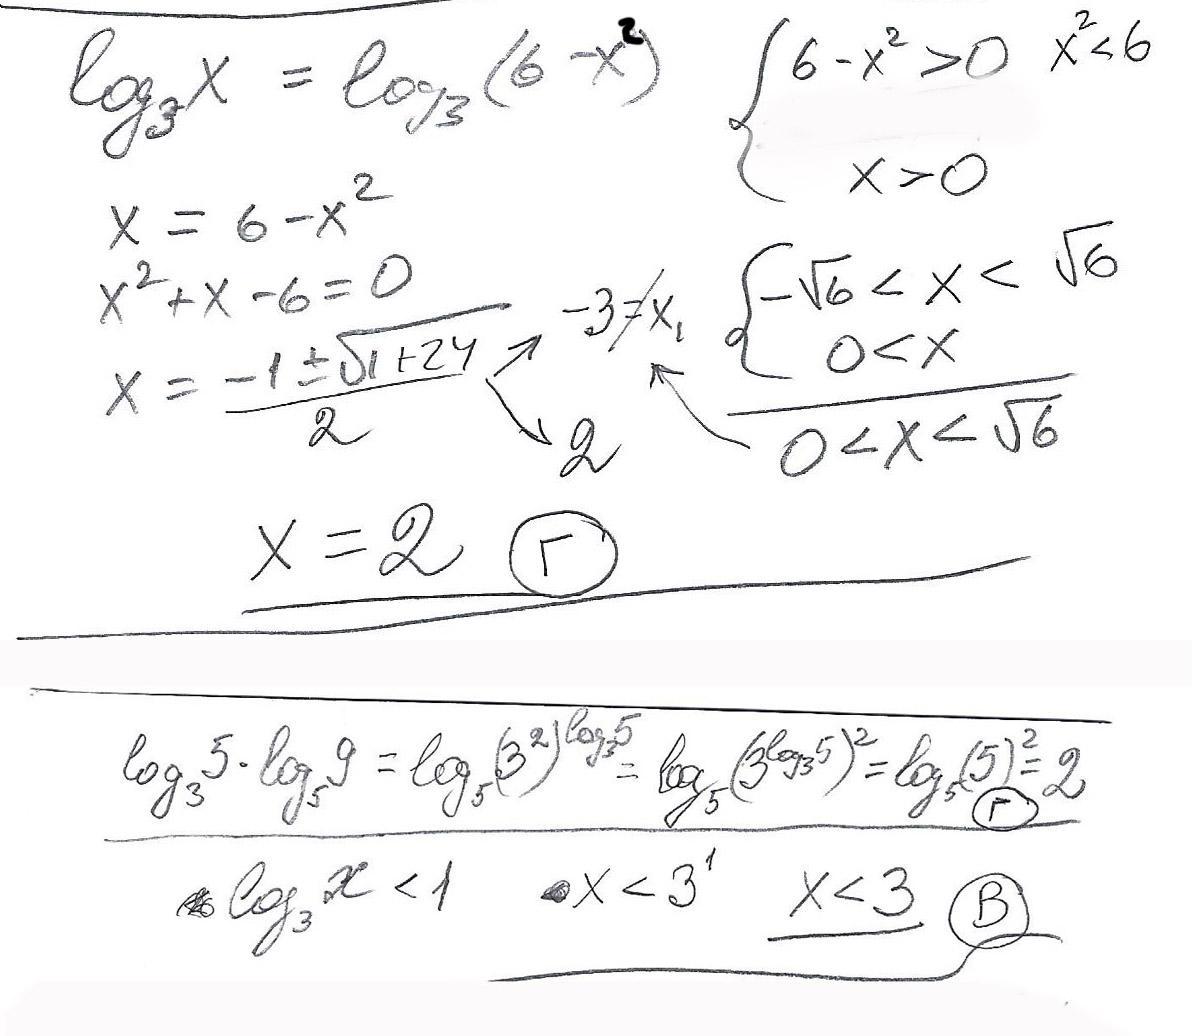 log₃x = log₃(6-x²) { 6-x² > 0 x² < 6
x > 0
x = 6-x²
x²+x-6=0 { -√6 < x < √6
0 < x
x = (-1±√(1+24))/2 ↗ -3≠x₁
↘ 2
0 < x < √6
x = 2 Г
log₃5·log₅9 = log₅(3²)^log₃5 = log₅(3^log₃5)² = log₅(5)² = 2 Г
log₃x < 1 x < 3¹ x < 3 В